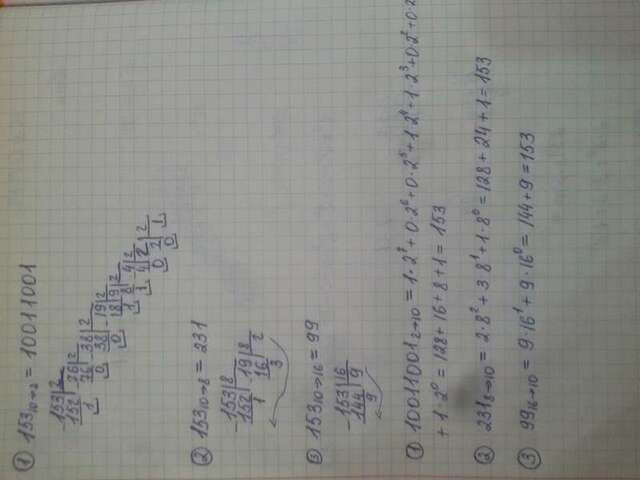 ① 153₁₀→₂ = 10011001
153|2
152|76|2
1 76|38|2
0 38|19|2
0 18|9|2
1 8|4|2
1 4|2|2
0 2|1
0
② 153₁₀→₈ = 231
-153|8
152|-19|8
1 16|2
3
③ 153₁₀→₁₆ = 99
-153|16
144|9
9
① 10011001₂→₁₀ = 1·2⁷+0·2⁶+0·2⁵+1·2⁴+1·2³+0·2²+0·2
+1·2⁰ = 128+16+8+1 = 153
② 231₈→₁₀ = 2·8²+3·8¹+1·8⁰ = 128+24+1 = 153
③ 99₁₆→₁₀ = 9·16¹+9·16⁰ = 144+9 = 153